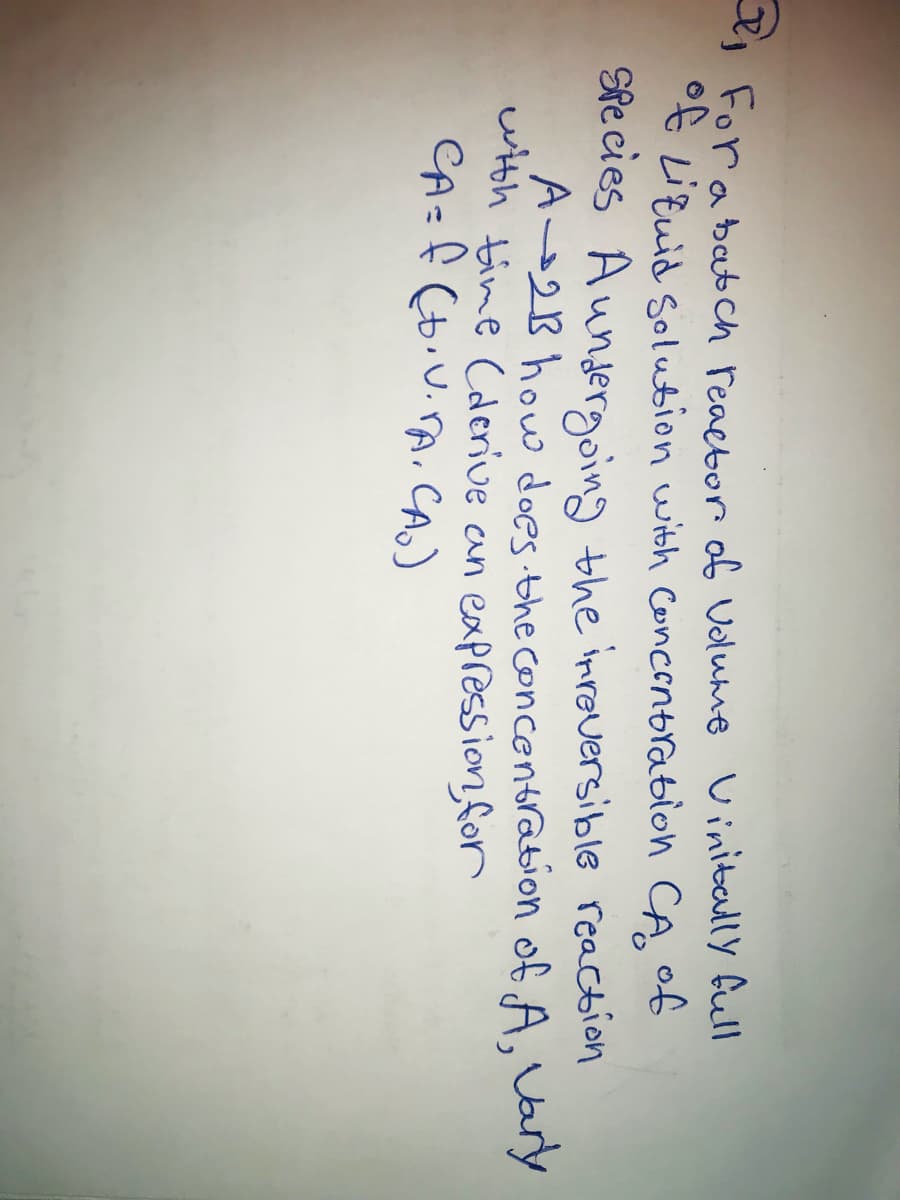 For a batch reactor of Volume V initally full
of Liquid solution with concentration CA₀ of
species A undergoing the irreversible reaction
A → 2B how does the concentration of A, vary
with time (derive an expression for
CA = f (t, V, rA, CA₀)